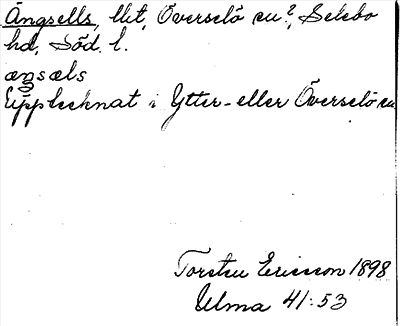 Ängsells, llet, Överselö sn?, Selebo
hd, Söd. l.
ängsæls
Uppteknat i Ytter- eller Överselö sn
Torsten Ericsson 1898
Ulma 41:53